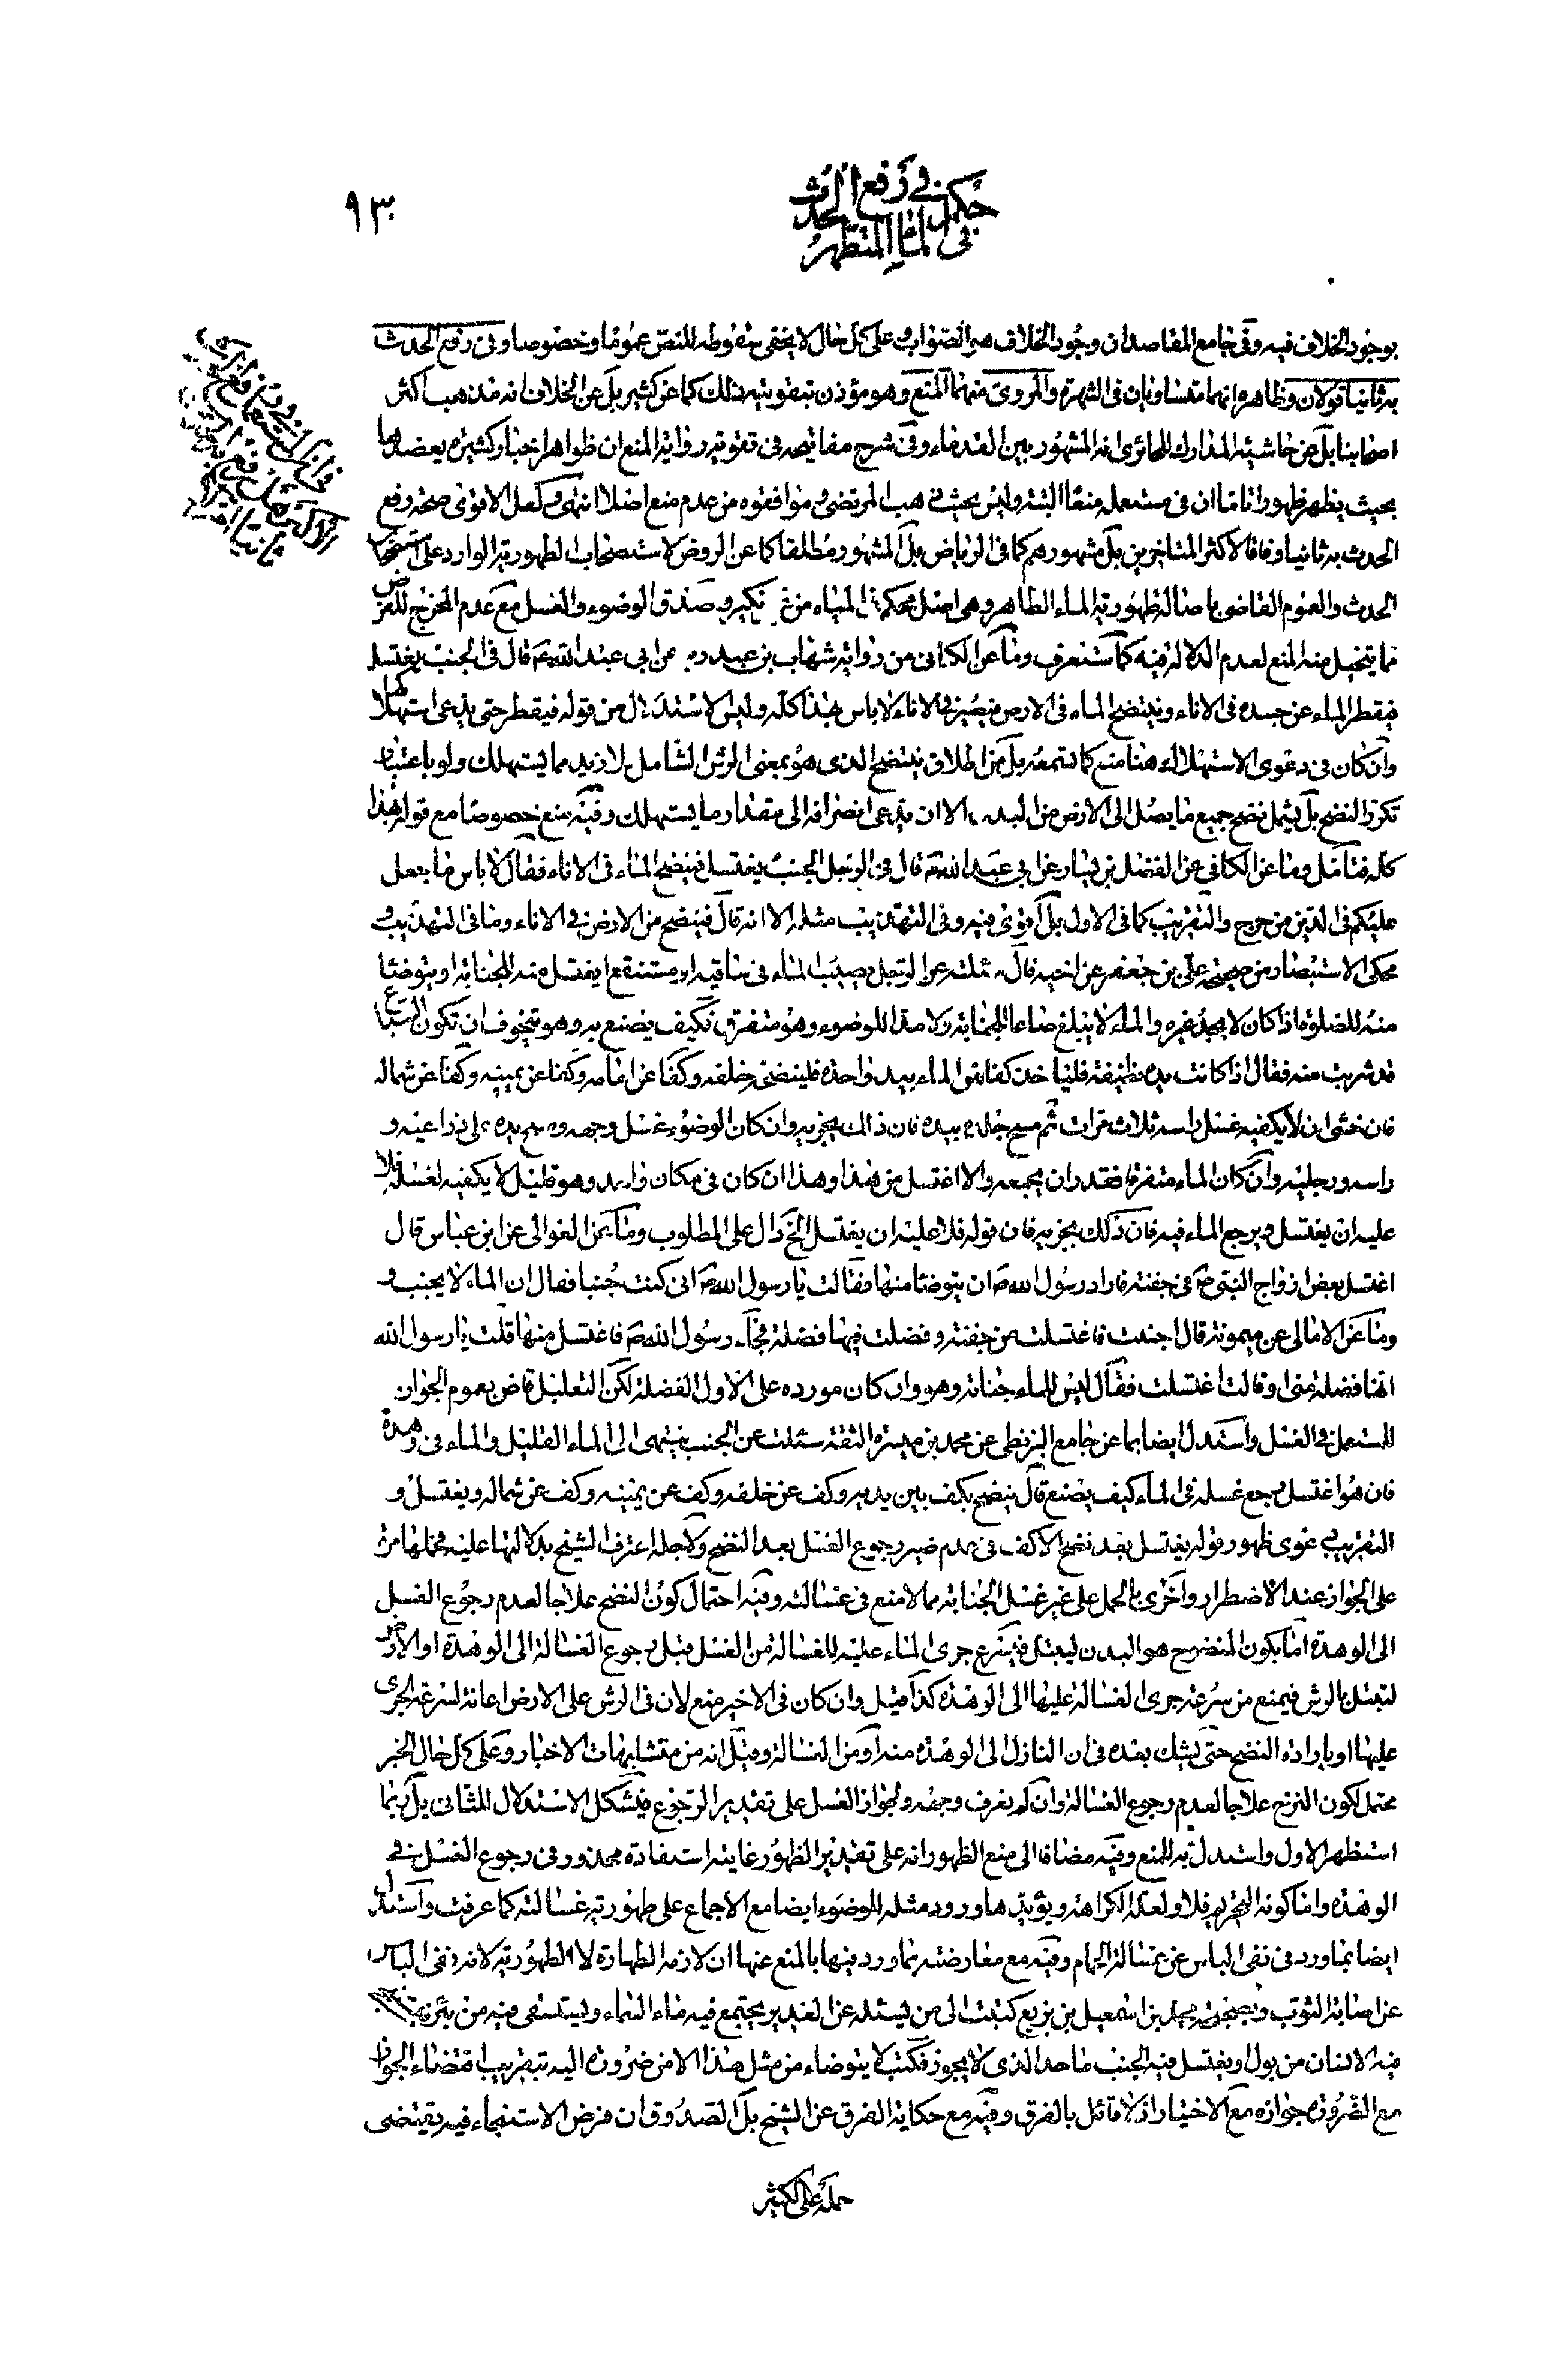 حكم في رفع الحدث
في الماء المتطهر
٩٣
بوجود الخلاف فيه وفى جامع المقاصد ان وجود الخلاف هو الصواب وعلى كل حال لا يخفى سقوطه للنص عموما وخصوصا وفى رفع الحدث
به ثانيا قولان وظاهره انهما متساويان فى الشهرة والمروى منهما المنع وهو مؤذن بتقويته بذلك كما عن كثير بل عن الخلاف انه مذهب اكثر
اصحابنا بل عن حاشية المدارك للحائرى انه المشهور بين القدماء وفى شرح مفاتيحه فى تقوية رواية المنع ان ظواهر اخبار كثيرة يعضدها
بحيث يظهر ظهورا تاما ان فى مستعمله منعا البتة وليس بحيث مذهب المرتضى و موافقوه من عدم منع اصلا انتهى ولعل الاقوى صحة رفع
الحدث به ثانيا وفاقا لاكثر المتاخرين بل مشهورهم كما فى الرياض بل المشهور مطلقا كما عن الروض لاستصحاب الطهورية الوارد على استصحاب
الحدث والعموم القاضى باصالة طهورية الماء الطاهر وهى اصل محكم فى المياه من غير نكير وصدق الوضوء والغسل مع عدم المخرج للفرض
مما يتخيل منه المنع لعدم الدلالة فيه كما ستعرف وما عن الكافى من رواية شهاب بن عبد ربه عن ابى عبد الله ع قال فى الجنب يغتسل
فيقطر الماء عن جسده فى الاناء وينتضح الماء فى الارض فيصير فى الاناء لا باس بهذا كله وليس الاستدلال من قوله فيقطر حتى يدعى استهلاكا
وان كان فى دعوى الاستهلاك هنا منع كما تسمعه بل من اطلاق ينتضح الذى هو بمعنى الرش الشامل لازيد مما يستهلك ولو باعتبار
تكرر النضح بل يشمل نضح جميع ما يصل الى الارض من البدن الا ان يدعى انصرافه الى مقدار ما يستهلك وفيه منع خصوصا مع قوله بهذا
كله فتامل وما عن الكافى عن الفضل بن يسار عن ابى عبد الله ع قال فى الرجل الجنب يغتسل فينضح الماء فى الاناء فقال لا باس ما جعل
عليكم فى الدين من حرج والتقريب كما فى الاول بل اقوى فيه وفى التهذيب مثله الا انه قال فينضح من الارض فى الاناء وما فى التهذيب و
محكى الاستبصار من صحيحة على بن جعفر عن اخيه قال سئلته عن الرجل يصيب الماء فى ساقية او مستنقع ايغتسل منه للجنابة او يتوضأ
منه للصلوة اذا كان لا يجد غيره والماء لا يبلغ صاعا للجنابة ولا مدا للوضوء وهو متفرق فكيف يصنع به وهو يتخوف ان تكون السباع
قد شربت منه فقال اذا كانت يده نظيفة فلياخذ كفا من الماء بيد واحدة فلينضحه خلفه وكفا عن امامه وكفا عن يمينه وكفا عن شماله
فان خشى ان لا يكفيه غسل راسه ثلاث مرات ثم مسح جلده بيده فان ذلك يجزيه وان كان الوضوء غسل وجهه ومسح يده على ذراعيه و
راسه ورجليه وان كان الماء متفرقا فقدر ان يجمعه والا اغتسل من هذا وهذا ان كان فى مكان واحد وهو قليل لا يكفيه لغسله فلا
عليه ان يغتسل ويرجع الماء فيه فان ذلك يجزيه فان قوله فلا عليه ان يغتسل الخ دال على المطلوب وما عن الغوالى عن ابن عباس قال
اغتسل بعض ازواج النبى ص فى جفنة فاراد رسول الله ص ان يتوضا منها فقالت يا رسول الله ص انى كنت جنبا فقال ان الماء لا يجنب و
وما عن الامالى عن ميمونة قال اجنبت فاغتسلت من جفنة و فضلت فيها فضلة فجاء رسول الله ص فاغتسل منها قلت يا رسول الله
انها فضلة منى او قالت اغتسلت فقال ليس للماء جنابة وهو وان كان مورده على الاول الفضلة لكن التعليل قاض بعموم الجواز
للمستعمل فى الغسل واستدل ايضا بما عن جامع البزنطى عن محمد بن ميسره الثقة سئلت عن الجنب ينتهى الى الماء القليل والماء فى وهدة
فان هو اغتسل رجع غسله فى الماء كيف يصنع قال ينضح بكف بين يديه وكف عن خلفه وكف عن يمينه وكف عن شماله ويغتسل و
التقريب دعوى ظهور قوله يغتسل بعد نضح الاكف فى عدم ضير رجوع الغسل بعد النضح ولاجله اعترف الشيخ بدلالتها عليه فحملها مرة
على الجواز عند الاضطرار واخرى بالحمل على غير غسل الجنابة مما لا منع فى غسالته وفيه احتمال كون النضح علاجا لعدم رجوع الغسل
الى الوهدة اما بكون المنضوح هو البدن ليبتل فيسرع جرى الماء عليه للغسالة من الغسل قبل رجوع الغسالة الى الوهدة او الارض
لتبتل بالرش فيمنع من سرعة جرى الغسالة عليها الى الوهدة كذا قيل وان كان فى الاخير منع لان فى الرش على الارض اعانة لسرعة الجرى
عليها او بارادة النضح حتى يشك بعده فى ان النازل الى الوهدة منه او من الغسالة وقيل انه من متشابهات الاخبار وعلى كل حال الخبر
محتمل لكون النزح علاجا لعدم رجوع الغسالة وان لم يعرف وجهه ولجواز الغسل على تقدير الرجوع فيشكل الاستدلال للثانى بل ربما
استظهر الاول واستدل به للمنع وفيه مضافا الى منع الظهور انه على تقدير الظهور غايته استفادة محذور فى رجوع الغسل فى
الوهدة واما كونه التحريم فلا ولعله الكراهة ويؤيدها ورود مثله للوضوء ايضا مع الاجماع على طهورية غسالته كما عرفت واستدل
ايضا بما ورد فى نفى الباس عن غسالة الحمام وفيه مع معارضته بما ورد فيها بالمنع عنها ان لازمه الطهارة لا الطهورية لانه نفى الباس
عن اصابة الثوب وبصحيحة محمد بن اسمعيل بن بزيع كتبت الى من يسئله عن الغدير يجتمع فيه ماء السماء ويستسقى فيه من بئر
فيه الانسان من بول او يغتسل فيه الجنب ما حده الذى لا يجوز فكتب لا يتوضاء من مثل هذا الا من ضرورة اليه بتقريب اقتضاء الجواز
مع الضرورة جوازه مع الاختيار اذ لا قائل بالفرق وفيه مع حكاية الفرق عن الشيخ بل الصدوق ان فرض الاستنجاء فيه يقتضى
حمله على الكثير